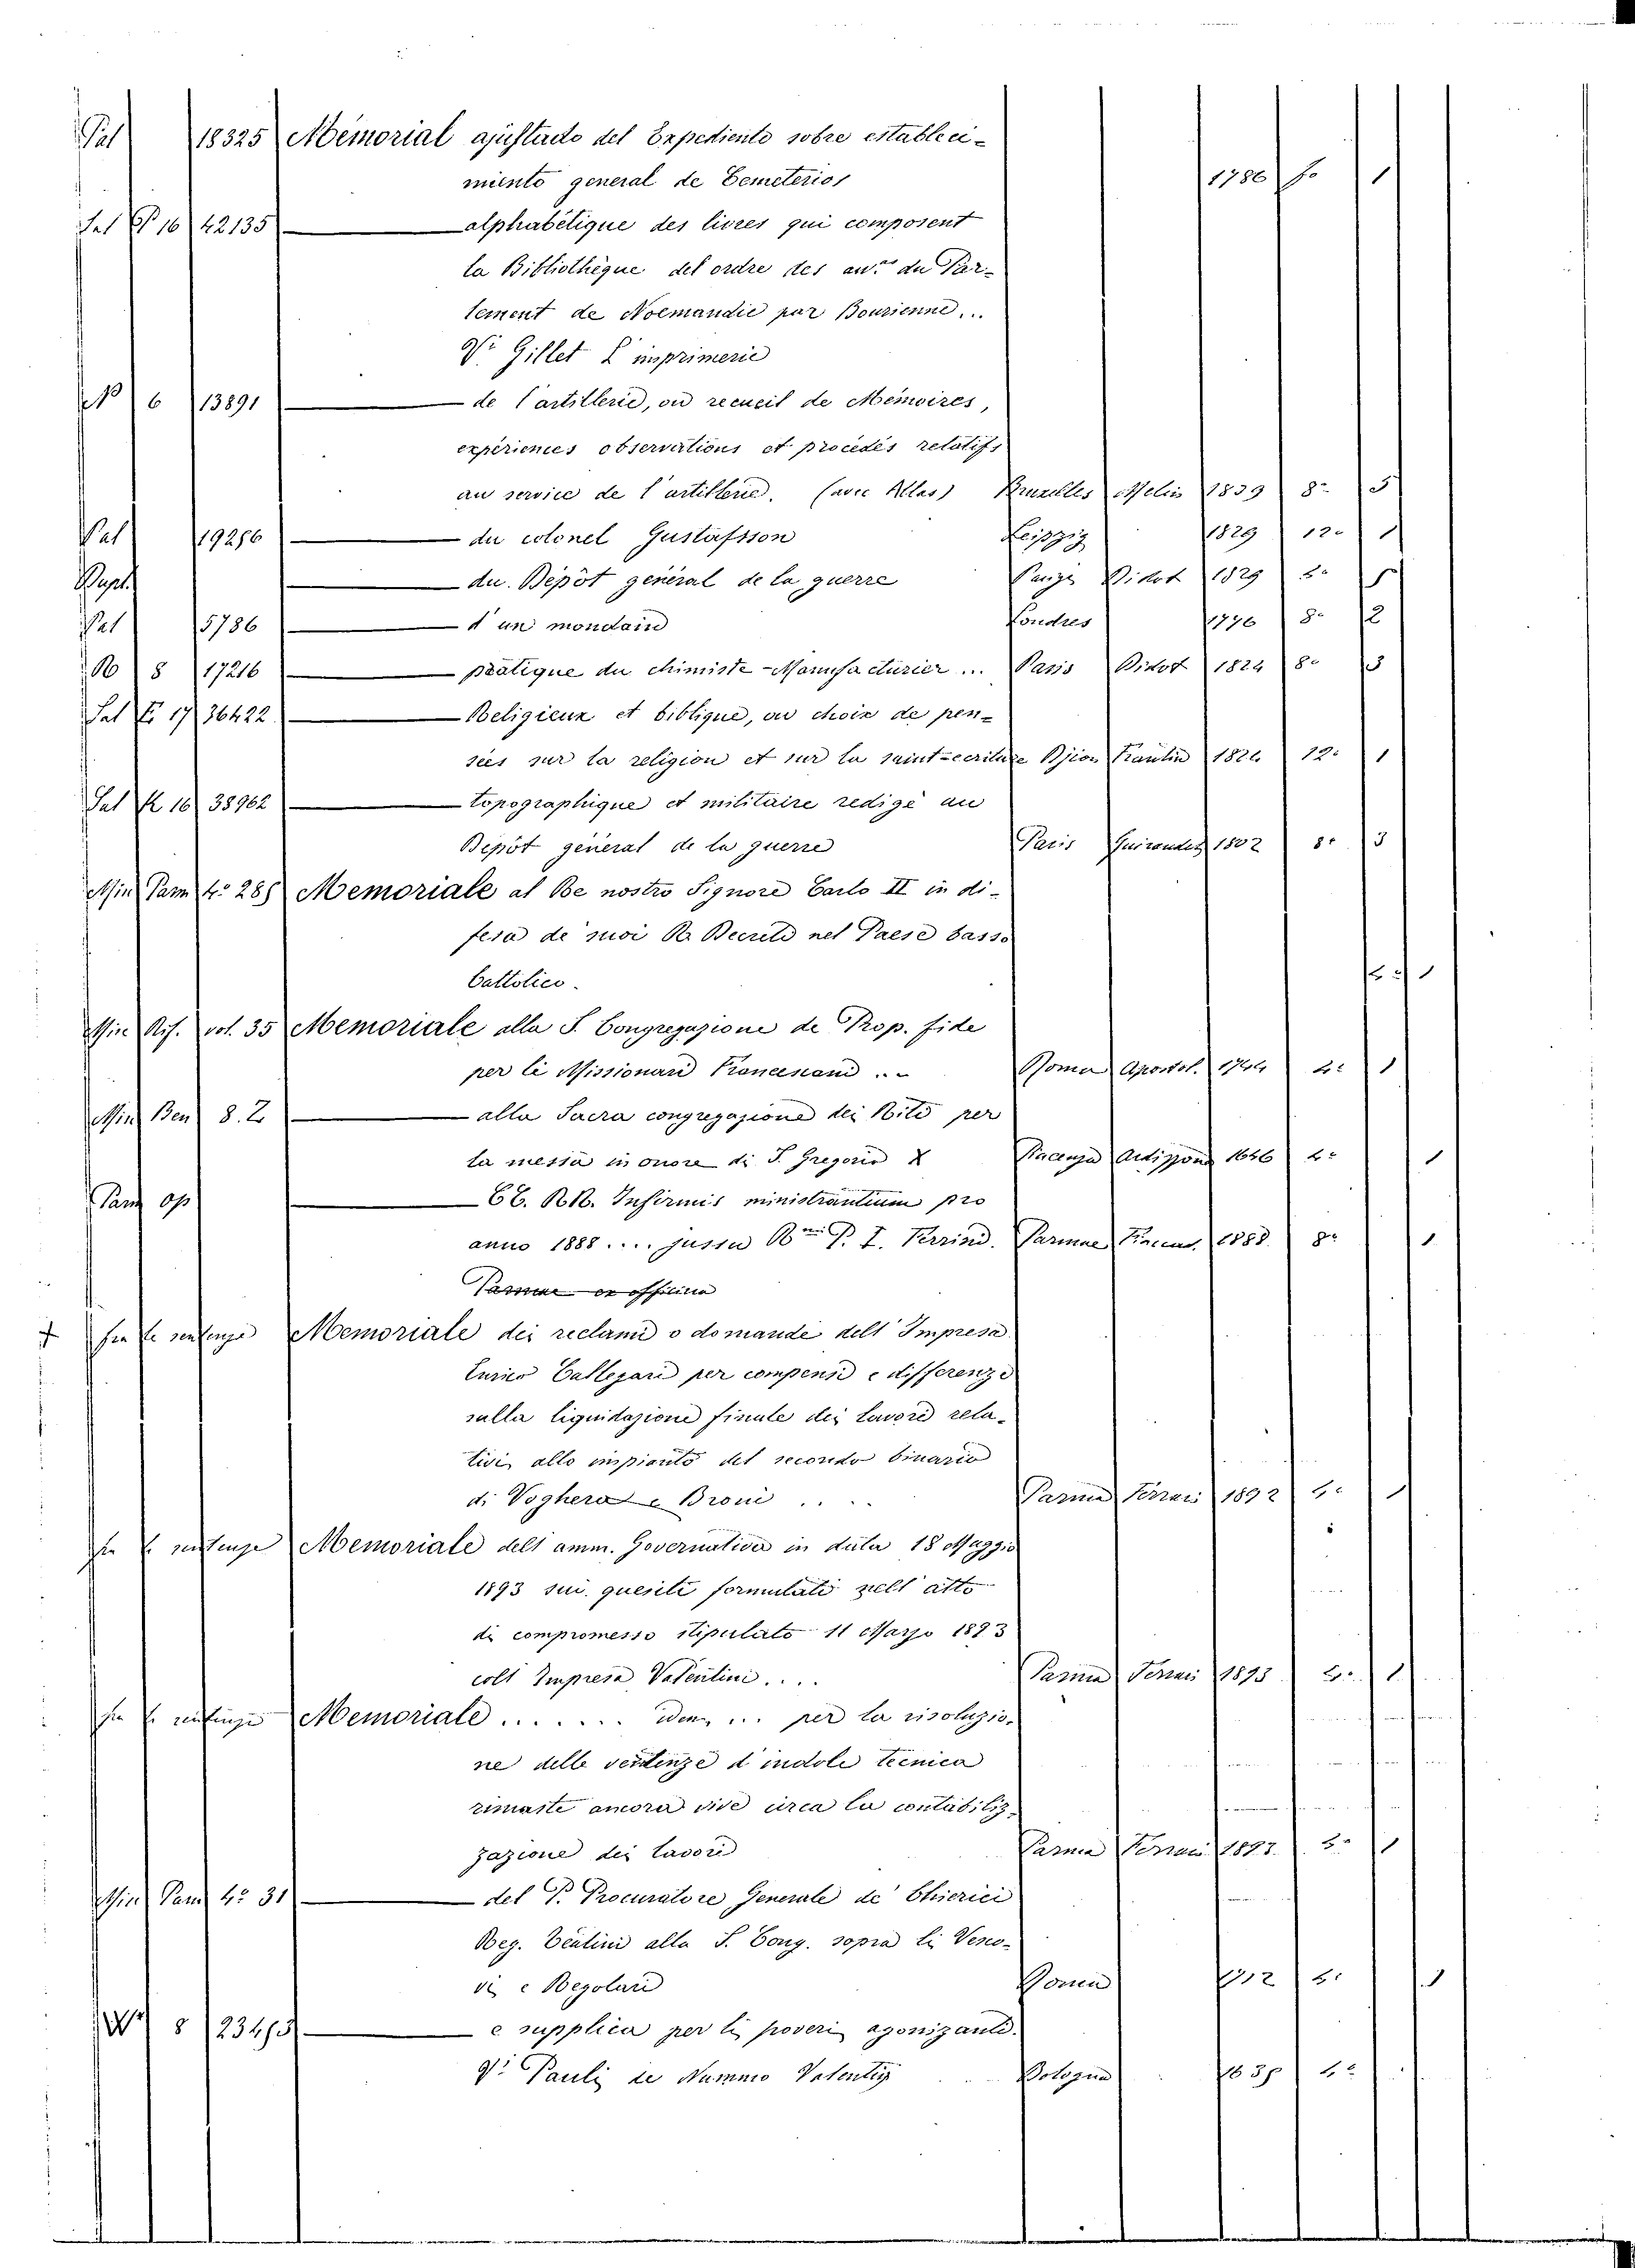 Pal 18325 Mémorial ajustado del Expediente sobre estableci-
miento general de Cemeterios 1786 fo 1
Sal P 16 42135 — alphabétique des livres qui composent
la Bibliothèque del ordre des av.ts du Par-
lement de Normandie par Bourienne...
Vi Gillet L'imprimerie
6 13891 — de l'artillerie, ou recueil de Mémoires,
expériences observations et procédés relatifs
au service de l'artillerie. (avec Atlas) Bruxelles Melin 1839 8° 5
Pal 19286 — du colonel Gustafsson Leipzig 1829 12° 1
Dupl. — du Dépôt général de la guerre Parigi Didot 1829
Pal 5786 — d'un mondain Londres 1776 8° 2
8 17216 — pratique du chimiste-Manufacturier ... Paris Didot 1824 8° 3
Sal E 17 36422 — Religieux et biblique, ou choix de pen-
sées sur la religion et sur la saint-ecriture 1824 12° 1
Sal K 16 38962 — topographique et militaire redigé au
Dépôt général de la guerre Paris 1802 8° 3
Min Parm 4° 285 Memoriale al Re nostro Signore Carlo II in di-
fesa de suoi R. Decreti nel Paese basso
Cattolico. 4° 1
Min Rif. vol. 35 Memoriale alla S. Congregazione de Prop. fide
per li Missionari .. Roma Apostol. 1744 4° 1
Min Ben 8. Z — alla Sacra congregazione dei Riti per
la messa in onore di S. Gregorio X Piacenza Ardizzoni 1646 4° 1
Parm op — CC. RR. Infirmis ministrantium pro
anno 1888 .... jussu Rmi P. I. Ferrini. Parmae Fiaccad. 1888 8° 1
Parmae ex officina
+ sentenze Memoriale dei reclami o domande dell'Impresa
Enrico Callegari per compensi e differenze
sulla liquidazione finale dei lavori rela-
tivi allo impianto del secondo binario
di Voghera e Broni .... Parma Ferrari 1892 4° 1
sentenze Memoriale dell'amm. Governativa in data 18 Maggio
1893 sui quesiti formulati nell'atto
di compromesso stipulato 11 Marzo 1893
coll'Impresa Valentini .... Parma Ferrari 1893 4° 1
sentenze Memoriale ....... idem ... per la risoluzio-
ne delle vertenze d'indole tecnica
rimaste ancora vive circa la contabiliz-
zazione dei lavori Parma Ferrari 1893 4° 1
Min Parm 4° 31 — del P. Procuratore Generale de' Chierici
Reg. Teatini alla S. Cong. sopra li Vesco-
vi e Regolari Roma 4° 1
8 — e supplica per li poveri agonizanti.
Vi Pauli de Nummo Valentiz Bologna 4°